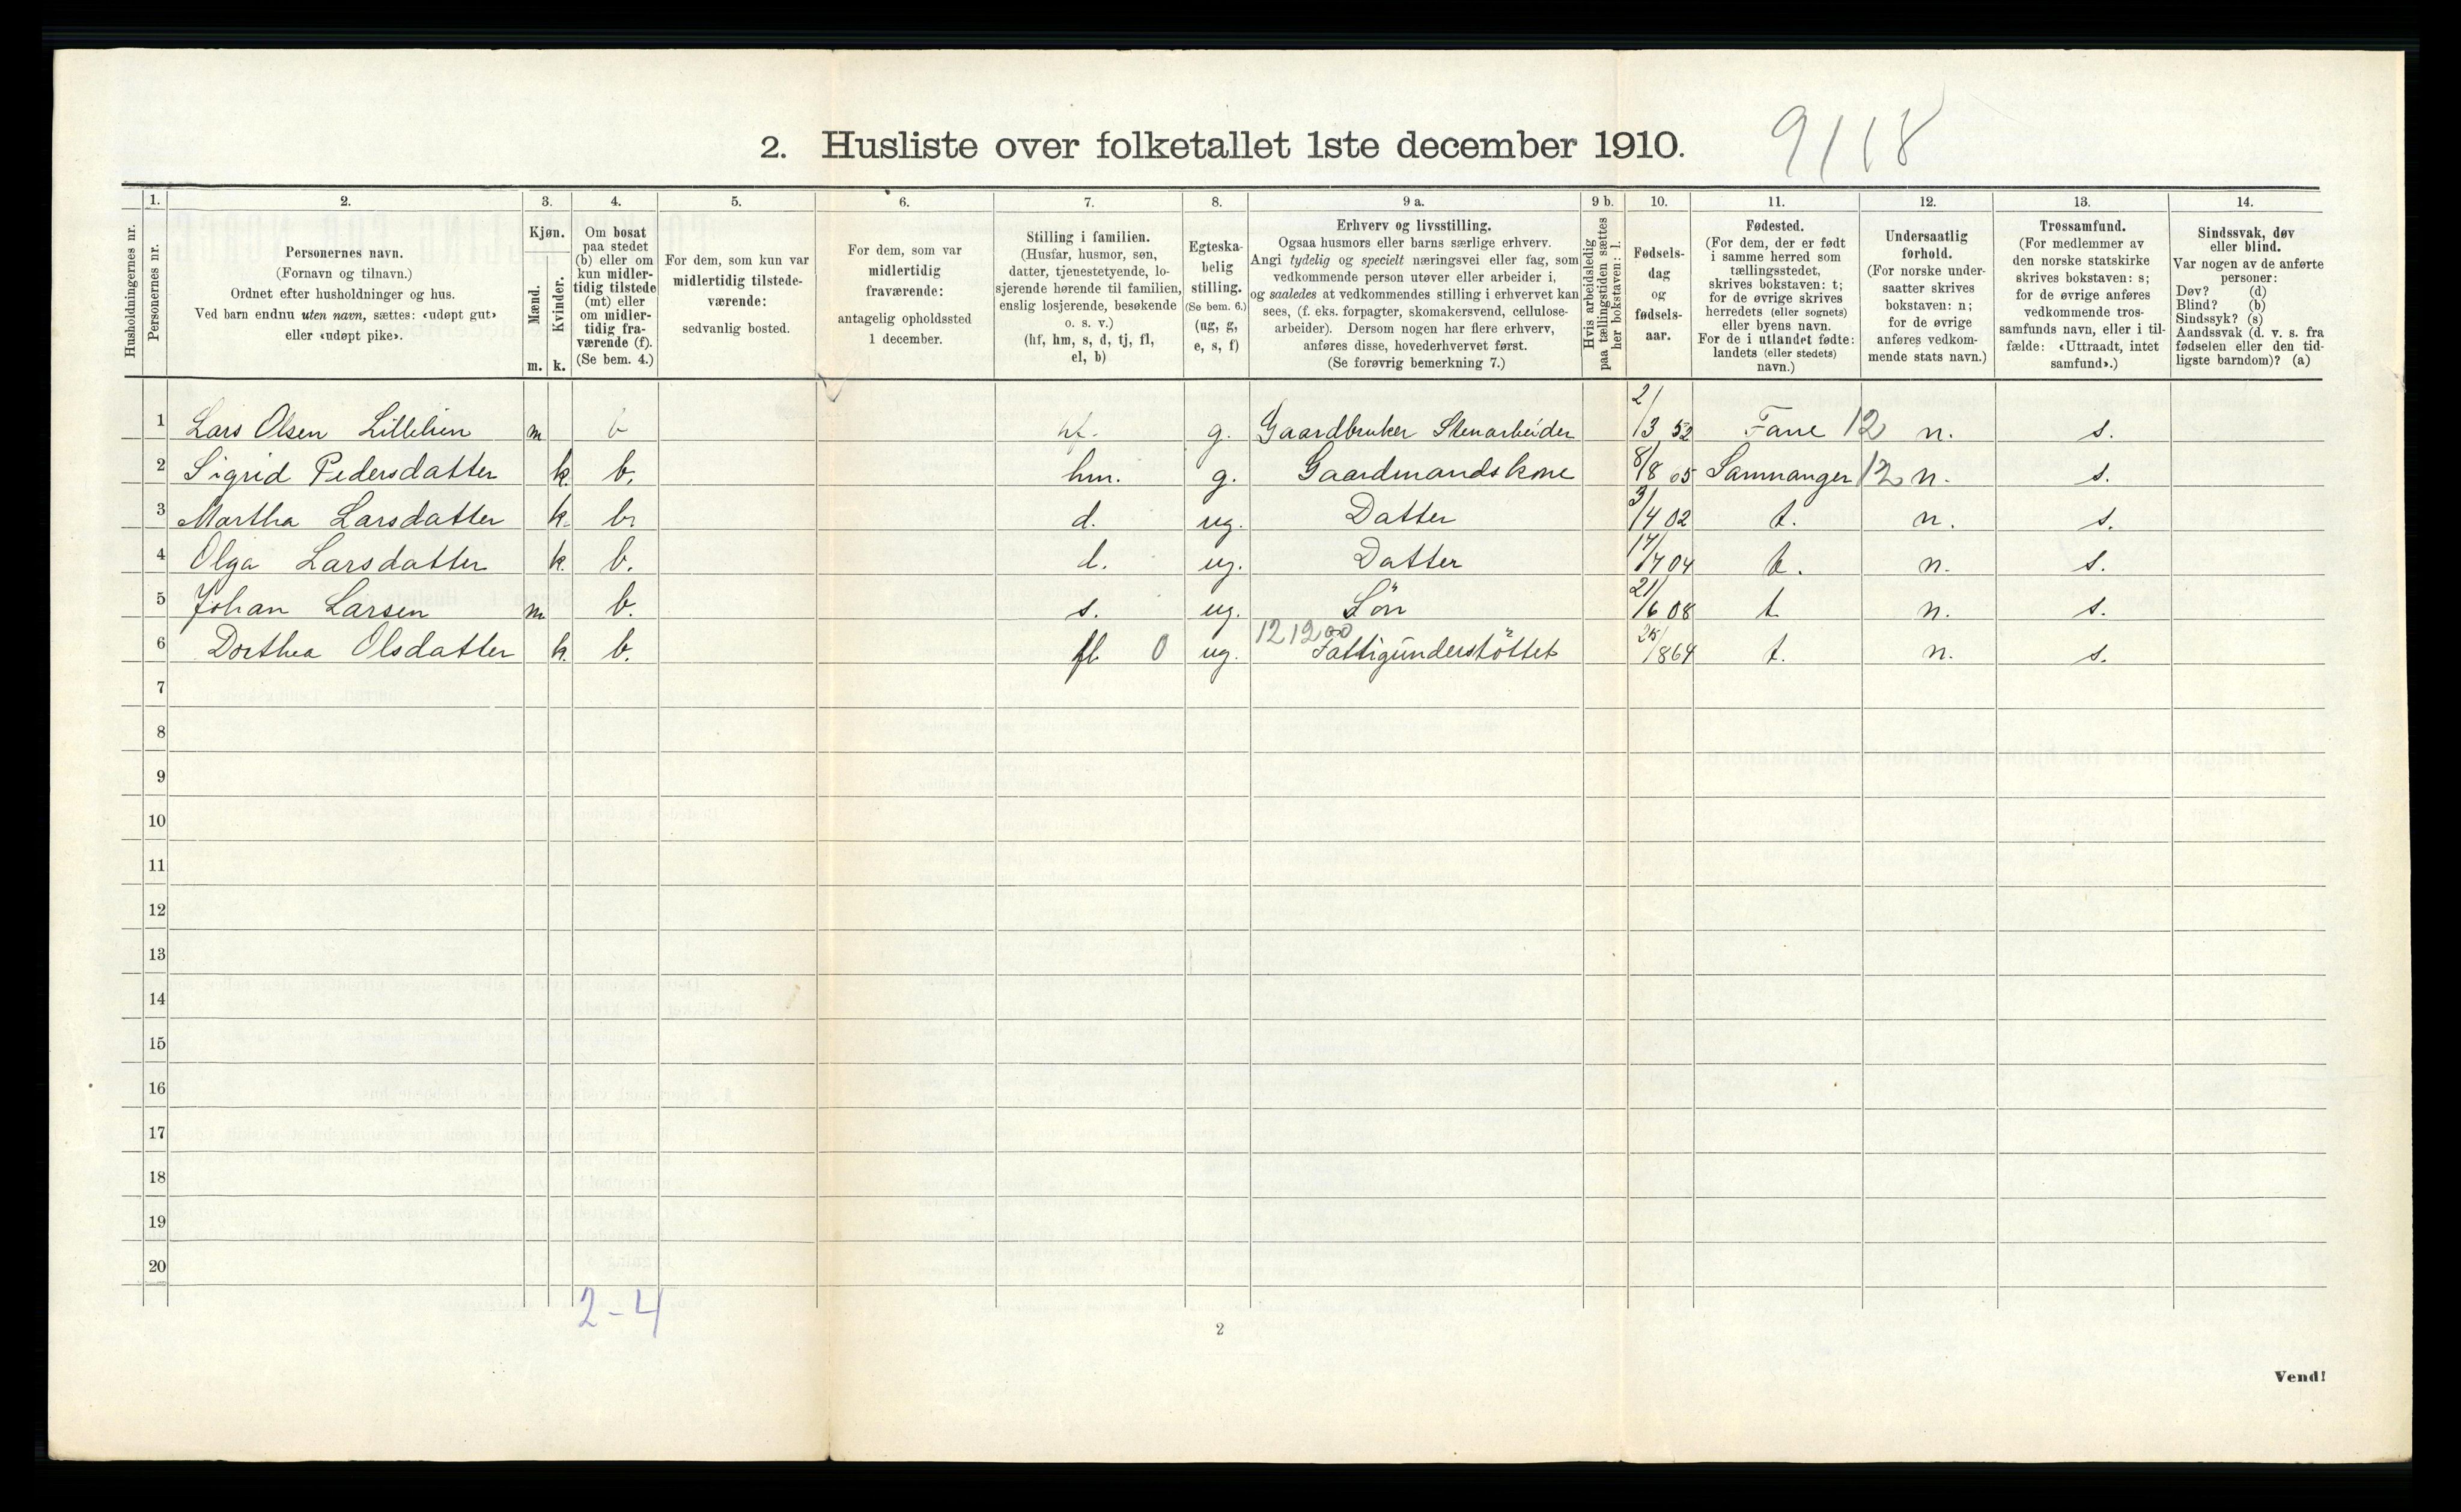 2. Husliste over folketallet 1ste december 1910. 9118
Husholdningernes nr.
1. Personernes nr.
2. Personernes navn.
(Fornavn og tilnavn.)
Ordnet efter husholdninger og hus.
Ved barn endnu uten navn, sættes: «udøpt gut»
eller «udøpt pike».
3. Kjøn.
Mænd. m.
Kvinder. k.
4. Om bosat
paa stedet
(b) eller om
kun midler-
tidig tilstede
(mt) eller
om midler-
tidig fra-
værende (f).
(Se bem. 4.)
5. For dem, som kun var
midlertidig tilstede-
værende:
sedvanlig bosted.
6. For dem, som var
midlertidig
fraværende:
antagelig opholdssted
1 december.
7. Stilling i familien.
(Husfar, husmor, søn,
datter, tjenestetyende, lo-
sjerende hørende til familien,
enslig losjerende, besøkende
o. s. v.)
(hf, hm, s, d, tj, fl,
el, b)
8. Egteska-
belig
stilling.
(Se bem. 6.)
(ug, g,
e, s, f)
9 a. Erhverv og livsstilling.
Ogsaa husmors eller barns særlige erhverv.
Angi tydelig og specielt næringsvei eller fag, som
vedkommende person utøver eller arbeider i,
og saaledes at vedkommendes stilling i erhvervet kan
sees, (f. eks. forpagter, skomakersvend, cellulose-
arbeider). Dersom nogen har flere erhverv,
anføres disse, hovederhvervet først.
(Se forøvrig bemerkning 7.)
9 b. Hvis arbeidsledig
paa tællingstiden sættes
her bokstaven: l.
10. Fødsels-
dag
og
fødsels-
aar.
11. Fødested.
(For dem, der er født
i samme herred som
tællingsstedet,
skrives bokstaven: t;
for de øvrige skrives
herredets (eller sognets)
eller byens navn.
For de i utlandet fødte:
landets (eller stedets)
navn.)
12. Undersaatlig
forhold.
(For norske under-
saatter skrives
bokstaven: n;
for de øvrige
anføres vedkom-
mende stats navn.)
13. Trossamfund.
(For medlemmer av
den norske statskirke
skrives bokstaven: s;
for de øvrige anføres
vedkommende tros-
samfunds navn, eller i til-
fælde: «Uttraadt, intet
samfund».)
14. Sindssvak, døv
eller blind.
Var nogen av de anførte
personer:
Døv? (d)
Blind? (b)
Sindssyk? (s)
Aandssvak (d. v. s. fra
fødselen eller den tid-
ligste barndom)? (a)
1 Lars Olsen Lillelien m b hf. g. Gaardbruker Stenarbeider 2/3 52 Fane 12 n. s.
2 Sigrid Pedersdatter k. b. hm. g. Gaardmandskone 8/8 65 Samnanger 12 n. s.
3 Martha Larsdatter k. b. d. ug. Datter 3/4 02 t. n. s.
4 Olga Larsdatter k. b. d. ug. Datter 17/7 04 t. n. s.
5 Johan Larsen m b. s. ug. Sön 21/6 08 t. n. s.
6 Dorthea Olsdatter k. b. fl 0 ug. 121200 Fattigunderstöttet 25/8 64 t. n. s.
7
8
9
10
11
12
13
14
15
16
17
18
19
20
2-4
2
Vend!